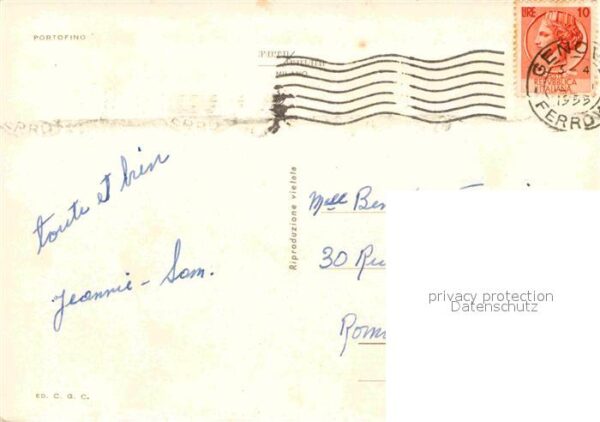 PORTOFINO
MILANO
LIRE 10
REPUBBLICA
ITALIANA
GENOV
1955
FERROV
toute et bien
Jeannie - Sam.
Riproduzione vietata
Mell Ben
30 Ru
Rom
privacy protection
Datenschutz
ED. C. G. C.